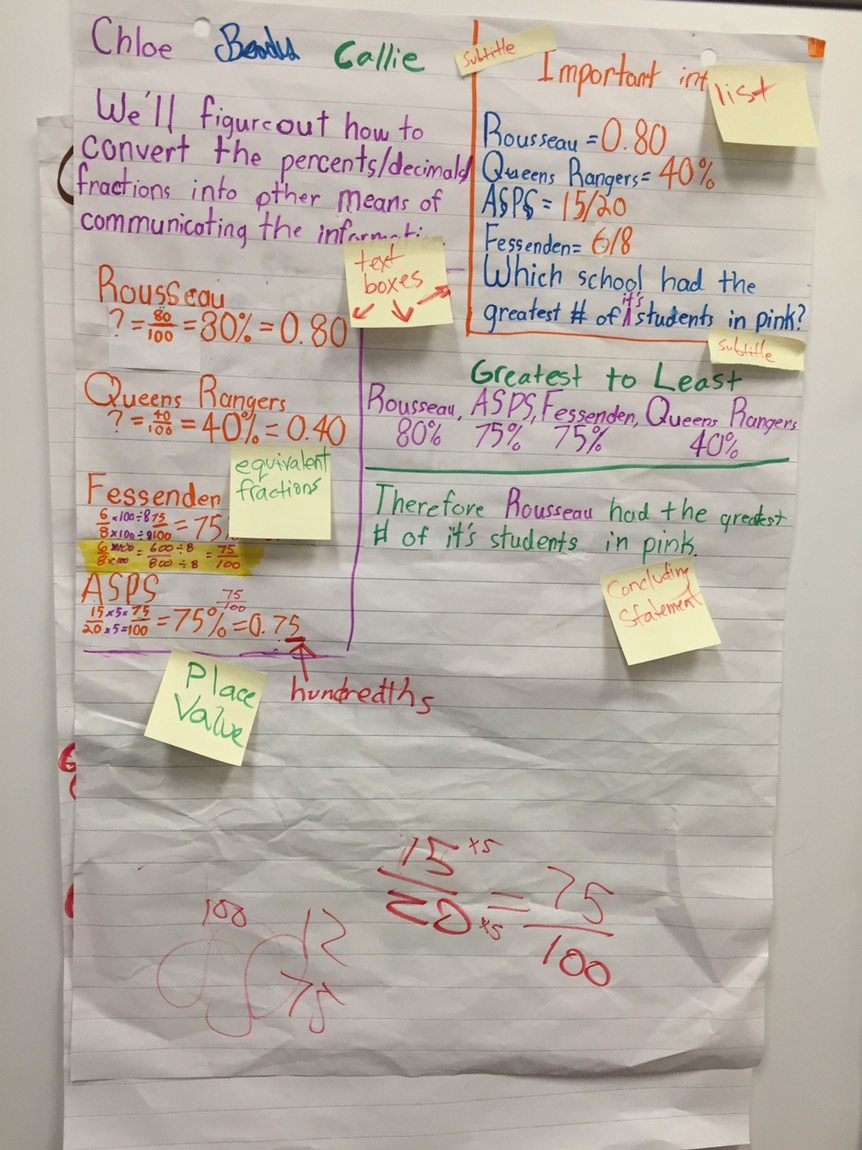 Chloe Callie
We'll figure out how to
convert the percents/decimals/
fractions into other means of
communicating the informati
text
boxes
Rousseau
? = 80/100 = 80% = 0.80
Queens Rangers
? = 40/100 = 40% = 0.40
equivalent
fractions
Fessenden
6/8 ×100÷8 ×100÷8 75/100 = 75
6/8 ×100 ×100 = 600÷8/800÷8 = 75/100
ASPS
75/100
15×5=75/20×5=100 = 75% = 0.75
hundredths
Place
Value
subtitle
Important inf
list
Rousseau = 0.80
Queens Rangers = 40%
ASPS = 15/20
Fessenden = 6/8
Which school had the
greatest # of it's students in pink?
subtitle
Greatest to Least
Rousseau, ASPS, Fessenden, Queens Rangers
80% 75% 75% 40%
Therefore Rousseau had the greatest
# of it's students in pink.
Concluding
Statement
15 ×5
20 ×5 = 75
100
100
75